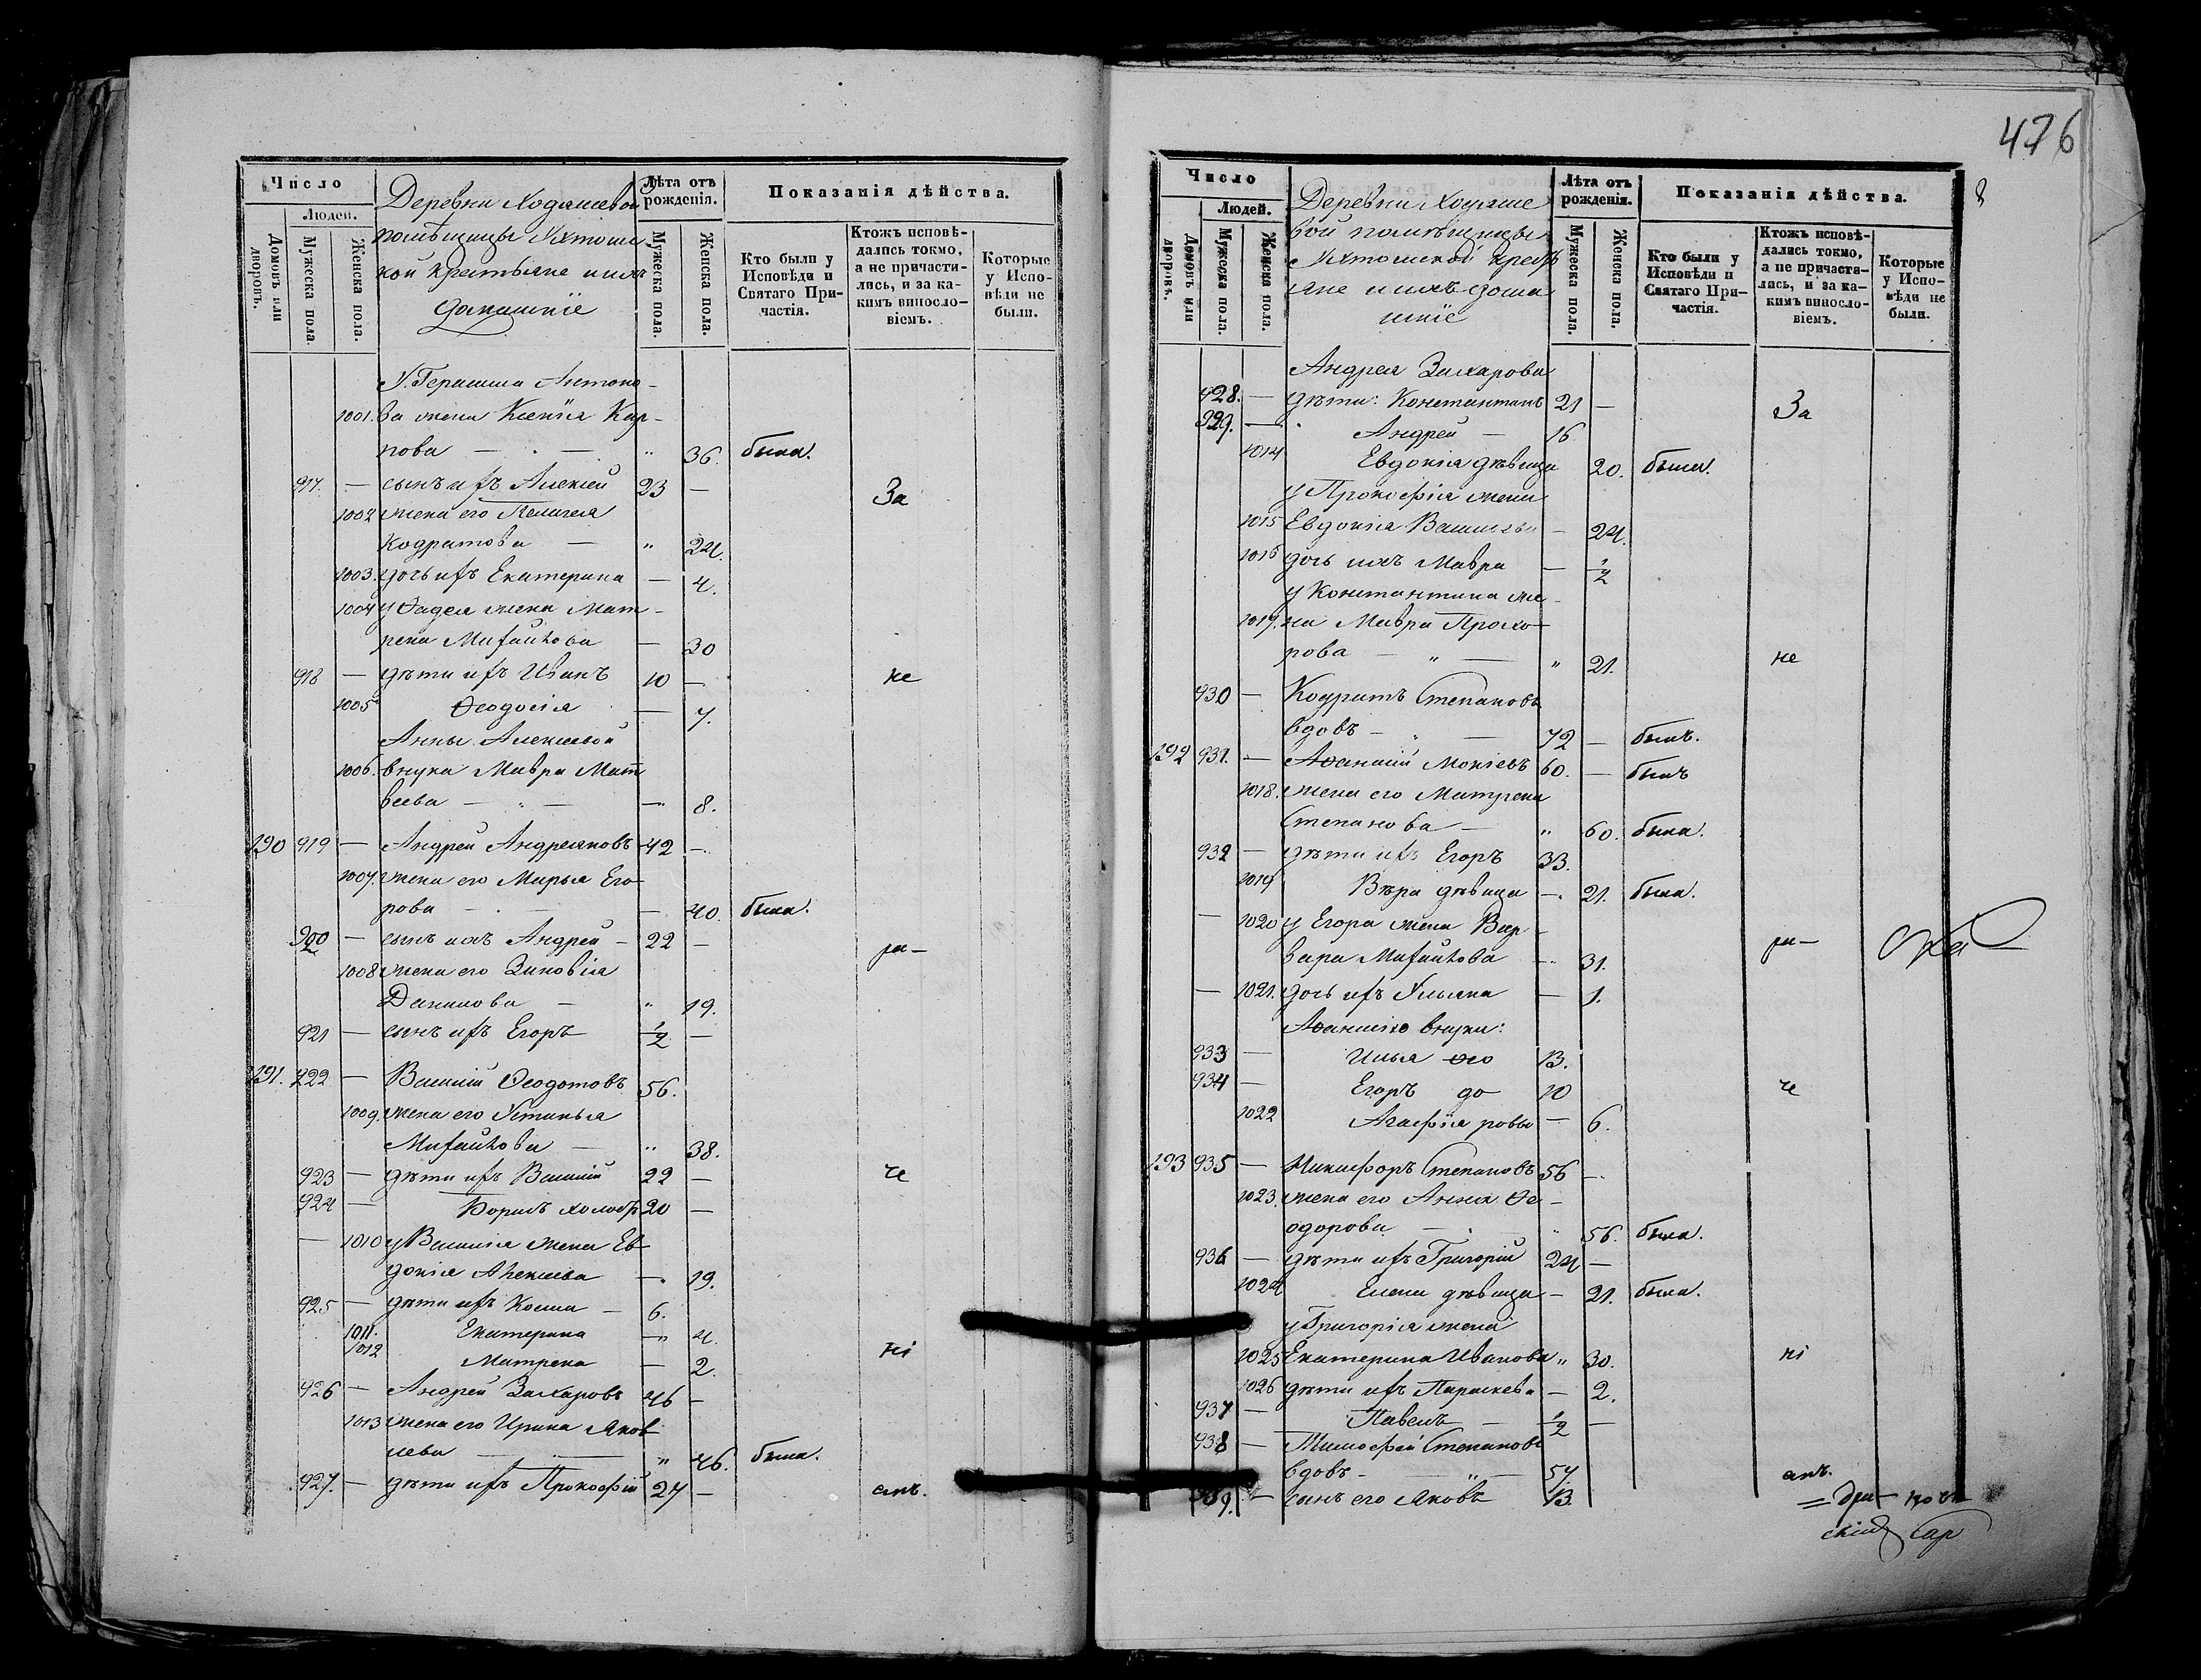 Число
Людей.
Домовъ или дворовъ.
Мужеска пола.
Женска пола.
Деревни Ходяшевой
помѣщицы Ухтомс
кой крестьяне и ихъ
домашніе
Лѣта отъ рожденія.
Мужеска пола.
Женска пола.
Показанія дѣйства.
Кто были у Исповѣди и Святаго Причастія.
Ктожъ исповѣдались токмо, а не причастились, и за какимъ винословіемъ.
Которые у Исповѣди не были.
У Герасима Антоно-
1001. ва жена Ксенія Кар-
пова — " 36. была.
917. — сынъ ихъ Алексей 23 — За
1002 жена его Пелагея
Кодратова — " 24.
1003. дочь ихъ Екатерина — 4.
1004 у Фадея жена Мат-
рена Михайлова — 30
918 — дѣти ихъ Иванъ 10 — не
1005 Ѳеодосія — 7.
Анны Алексеевой
1006. внука Мавра Мат
веева — — 8.
190 919 — Андрей Андреяновъ 42 —
1007. жена его Марья Его-
рова — — 40. была.
920 — сынъ ихъ Андрей — 22 — ра-
1008 жена его Зиновія
Данилова — " 19.
921 — сынъ ихъ Егоръ 1/2 —
191. 922 — Василій Ѳеодотовъ 56.
1009. жена его Устинья
Михайлова — " 38.
923 — дѣти ихъ Василій 22 — че
924 — Борисъ холостъ 20 —
— 1010 у Василія жена Ев-
докія Алексеева — 19.
925 — дѣти ихъ Косма — 6.
1011. Екатерина — 4.
1012 Матрена — 2. ні
926 — Андрей Захаровъ 46 —
1013 жена его Ирина Яков
лева — " 46. была.
927. — дѣти ихъ Прокофій 27 — емъ.
476
Число
Людей.
Домовъ или дворовъ.
Мужеска пола.
Женска пола.
Деревни Ходяше
вой помѣщицы
Ухтомской кресть
яне и ихъ дома
шніе
Лѣта отъ рожденія.
Мужеска пола.
Женска пола.
Показанія дѣйства.
Кто были у Исповѣди и Святаго Причастія.
Ктожъ исповѣдались токмо, а не причастились, и за какимъ винословіемъ.
Которые у Исповѣди не были.
Андрея Захарова
928. — дѣти: Константинъ 21 — За
929. — Андрей — 16.
1014 Евдокія дѣвица 20. была.
у Прокофія жена
1015 Евдокія Васильева — 24.
1016 дочь ихъ Мавра — 1/2
у Константина же-
1017. на Мавра Прохо-
рова — " — " 21. не
930 — Кодратъ Степановъ
вдовъ — " — 72 — былъ.
192 931. — Аѳанасій Мокіевъ 60. — былъ
1018. жена его Матрена
Степанова — " 60. была.
932 — дѣти ихъ Егоръ 33.
1019 Вѣра дѣвица — 21. была.
— 1020 у Егора жена Вар-
вара Михайлова — 31. ра-
— 1021. дочь ихъ Ульяна — 1.
Аѳанасія внуки:
933 — Илья Ѳео 13.
934 — Егоръ до 10 че
1022 Агафія ровы — 6.
193 935 — Никифоръ Степановъ 56 —
1023. жена его Анна Ѳе-
одорова — " 56. была.
936 — дѣти ихъ Григорій 24 —
1024 Елена дѣвица — 21. была.
у Григорія жена
1025 Екатерина Иванова " 30. ні
1026 дѣти ихъ Параскева — 2.
937 — Павелъ — 1/2 —
938 — Тимофей Степановъ
вдовъ — " — 57. емъ.
939. — сынъ его Яковъ 13.